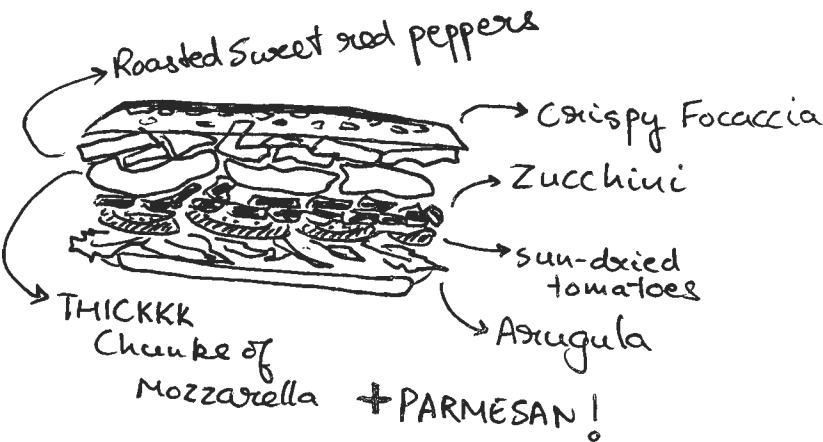 Roasted Sweet red peppers
Crispy Focaccia
Zucchini
sun-dried
tomatoes
Arugula
THICKKK
Chunks of
Mozzarella
+ PARMESAN!